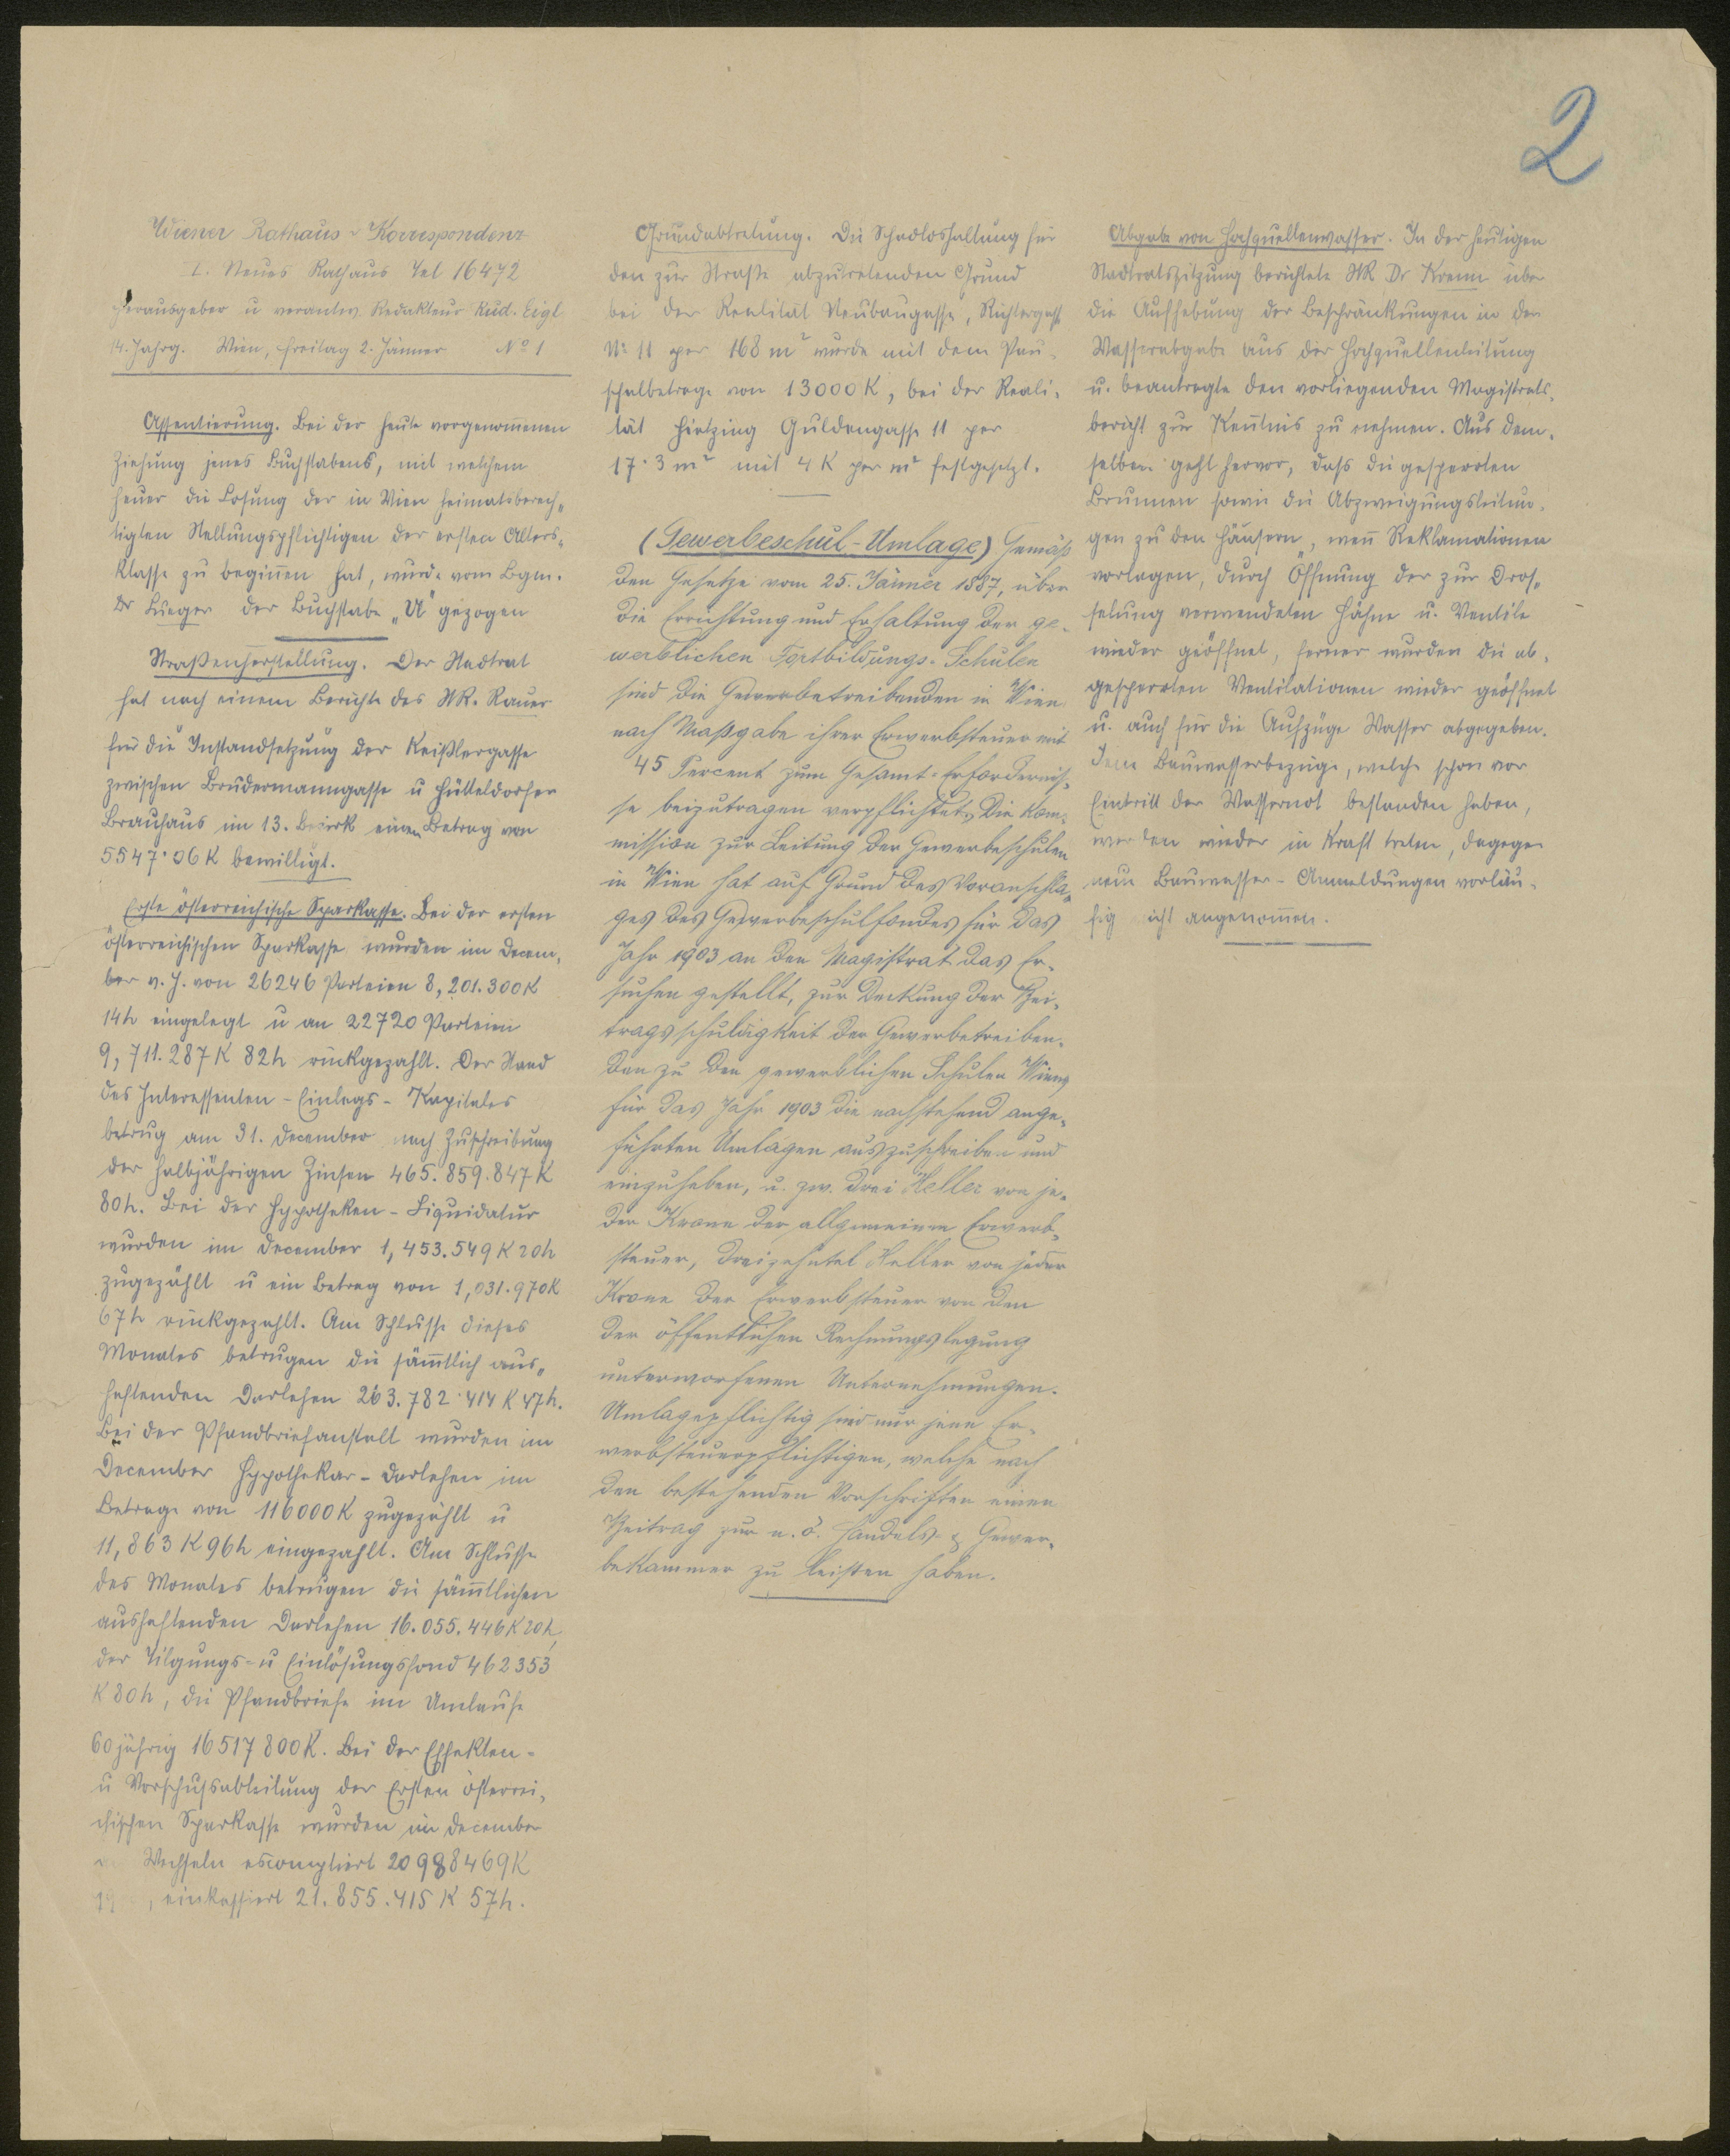 2
Wiener Rathaus-Korrespondenz
I. Neues Rathaus Tel 16472
Herausgeber u verantw. Redakteur Rud. Eigl
14. Jahrg. Wien, Freitag 2. Jänner No 1
Assentierung. Bei der heute vorgenom̄enen
Ziehung jenes Buchstabens, mit welchem
heuer die Losung der in Wien heimatsberech„
tigten Stellungspflichtigen der ersten Alters„
klasse zu begin̄en hat, wurde vom Bgm.
Dr Lueger der Buchstabe „U" gezogen
Straßenherstellung. Der Stadtrat
hat nach einem Berichte des StR. Rauer
für die Instandsetzung der Keißlergasse
zwischen Brudermanngasse u Hütteldorfer
Brauhaus im 13. Bezirk einen Betrag von
5547·06 K bewilligt.
Erste österreichische Sparkasse. Bei der ersten
österreichischen Sparkasse wurden im Decem„
ber v. J. von 26246 Parteien 8,201.300 K
14h eingelegt u an 22720 Parteien
9,711.287 K 82h rückgezahlt. Der Stand
des Interessenten-Einlags-Kapitales
betrug am 31. December nach Zuschreibung
der halbjährigen Zinsen 465.859.847 K
80h. Bei der Hypotheken-Liquidatur
wurden im December 1,453.549 K 20h
zugezählt u ein Betrag von 1,031.970 K
67h rückgezahlt. Am Schlusse dieses
Monates betrugen die säm̄tlich aus„
haftenden Darlehen 263.782·414 K 47h.
Bei der Pfandbriefanstalt wurden im
December Hypothekar-Darlehen im
Betrage von 116000 K zugezählt u
11,863 K 96h eingezahlt. Am Schlusse
des Monates betrugen die säm̄tlichen
aushaftenden Darlehen 16.055.446 K 20h,
der Tilgungs- u Einlösungsfond 462353
K 80h, die Pfandbriefe im Umlaufe
60jährig 16517800 K. Bei der Effekten-
u Vorschußabteilung der Ersten österrei„
chischen Sparkasse wurden im December
Wechseln escomptiert 20988469 K
, einkassiert 21.855.415 K 57h.
Grundabtretung. Die Schadloshaltung für
den zur Straße abzutretenden Grund
bei der Realität Neubaugasse, Richtergasse
No 11 per 168 m² wurde mit dem Pau-
schalbetrage von 13000 K, bei der Reali-
tät Hietzing Guldengasse 11 per
17·3 m² mit 4 K per m² festgesetzt.
(Gewerbeschul-Umlage) Gemäß
den Gesetze vom 25. Jänner 1887, über
die Errichtung und Erhaltung der ge-
werblichen Fortbildungs-Schulen
sind die Gewerbetreibenden in Wien
nach Maßgabe ihrer Erwerbsteuer mit
45 Percent zum Gesamt-Erfordernis-
se beizutragen verpflichtet. Die Kom-
mission zur Leitung der Gewerbeschulen
in Wien hat auf Grund des Voranschla-
ges des Gewerbeschulfondes für das
Jahr 1903 an den Magistrat das Er-
suchen gestellt, zur Deckung der Bei-
tragsschuldigkeit der Gewerbetreiben-
den zu den gewerblichen Schulen Wiens
für das Jahr 1903 die nachstehend ange-
führten Umlagen auszuschreiben und
einzuheben, u. zw. drei Heller von je-
der Krone der allgemeinen Erwerb-
steuer, dreizehntel Heller von jeder
Krone der Erwerbsteuer von den
der öffentlichen Rechnungslegung
unterworfenen Unternehmungen.
Umlagepflichtig sind nur jene Er-
werbsteuerpflichtigen, welche nach
den bestehenden Vorschriften einen
Beitrag zur n. ö. Handels- & Gewer-
bekammer zu leisten haben.
Abgabe von Hochquellenwasser. In der heutigen
Stadtratssitzung berichtete StR Dr Krenn über
die Aufhebung der Beschränkungen in der
Wasserabgabe aus der Hochquellenleitung
u. beantragte den vorliegenden Magistrats-
bericht zur Ken̄tnis zu nehmen. Aus dem-
selben geht hervor, daß die gesperrten
Brunnen sowie die Abzweigungsleitun-
gen zu den Häusern, wen̄ Reklamationen
vorlagen, durch Öffnung der zur Dros„
selung verwendeten Hähne u. Ventile
wieder geöffnet, ferner wurden die ab-
gesperrten Ventilationen wieder geöffnet
u. auch für die Aufzüge Wasser abgegeben.
Jene Bauwasserbezüge, welche schon vor
Eintritt der Wassernot bestanden haben,
werden wieder in Kraft treten, dagegen
neue Bauwasser-Anmeldungen vorläu-
fig nicht angenom̄en.